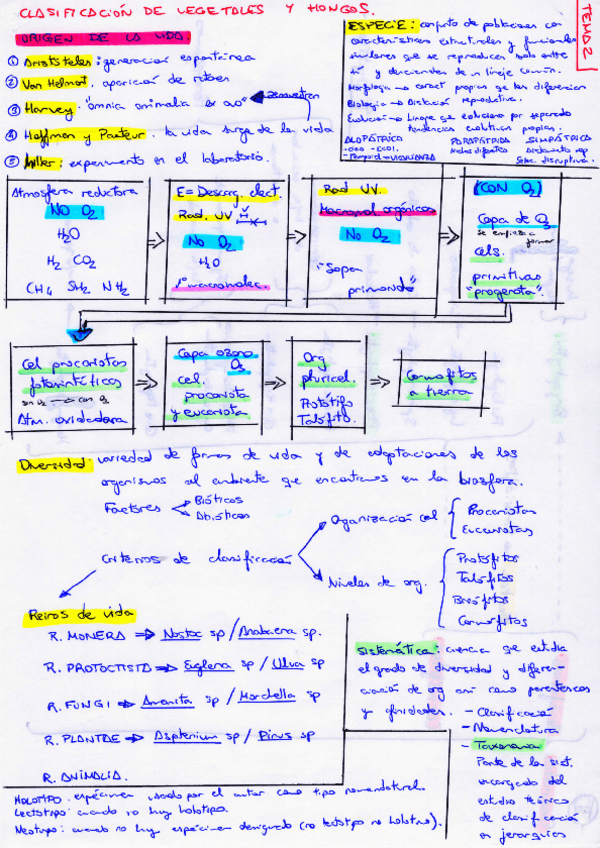 CLASIFICACIÓN DE VEGETALES Y HONGOS.
TEMA 2
ORIGEN DE LA VIDA:
① Aristóteles: generación espontánea
② Van Helmont: aparición de ratones
③ Harvey: "omnia animalia ex ovo"
④ Hoffman y Pasteur: la vida surge de la vida
⑤ Miller: experimento en el laboratorio.
ESPECIE: conjunto de poblaciones con
características estructurales y funcionales
similares que se reproducen solo entre
sí y descienden de un linaje común.
Morfología → caract propias que las diferencian
Biología → Aislación reproductiva.
Evolución → Linaje que evoluciona por separado
tendencias evolutivas propias.
ALOPÁTRICA PARAPÁTRIDA SIMPÁTRICA
Atmósfera reductora
NO O₂
H₂O
H₂ CO₂
CH₄ SH₂ NH₂
E = Descarg. elect.
Rad. UV
No O₂
H₂O
Rad UV.
Macromol orgánicas
No O₂
"Sopa
primordo"
(CON O₂)
Capa de O₃
se empieza a
formar
cels.
primitivas
"progenota".
Cel procariotas
fotosintéticas
sin O₂ → con O₂
Atm. oxidadora
Capa ozono
O₃
cel.
procariota
y eucariota
Org
pluricel.
Protófito
Talófito.
Cormofitos
a tierra
Diversidad: variedad de formas de vida y de adaptaciones de los
organismos al ambiente que encontramos en la biosfera.
Factores
Bióticos
Abióticos
Criterios de clasificación
Organización cel
Procariotas
Eucariotas
Niveles de org.
Protófitos
Talófitos
Briófitos
Cormófitos
Reinos de vida
R. MONERA ⇒ Nostoc sp / Anabaena sp.
R. PROTOCTISTA ⇒ Euglena sp / Ulva sp
R. FUNGI ⇒ Amanita sp / Morchella sp
R. PLANTAE ⇒ Asplenium sp / Pinus sp
R. ANIMALIA.
Sistemática: ciencia que estudia
el grado de diversidad y diferen-
ciación de org así como parentescos
y afinidades.
- Clasificación
- Nomenclatura
- Taxonomía
Parte de la sist.
encargada del
estudio teórico
de clasificación
en jerarquías
HOLOTIPO: espécimen usado por el autor como tipo nomenclatural.
Lectotipo: cuando no hay holotipo.
Neotipo: cuando no hay espécimen designado (no lectotipo no holotipo).